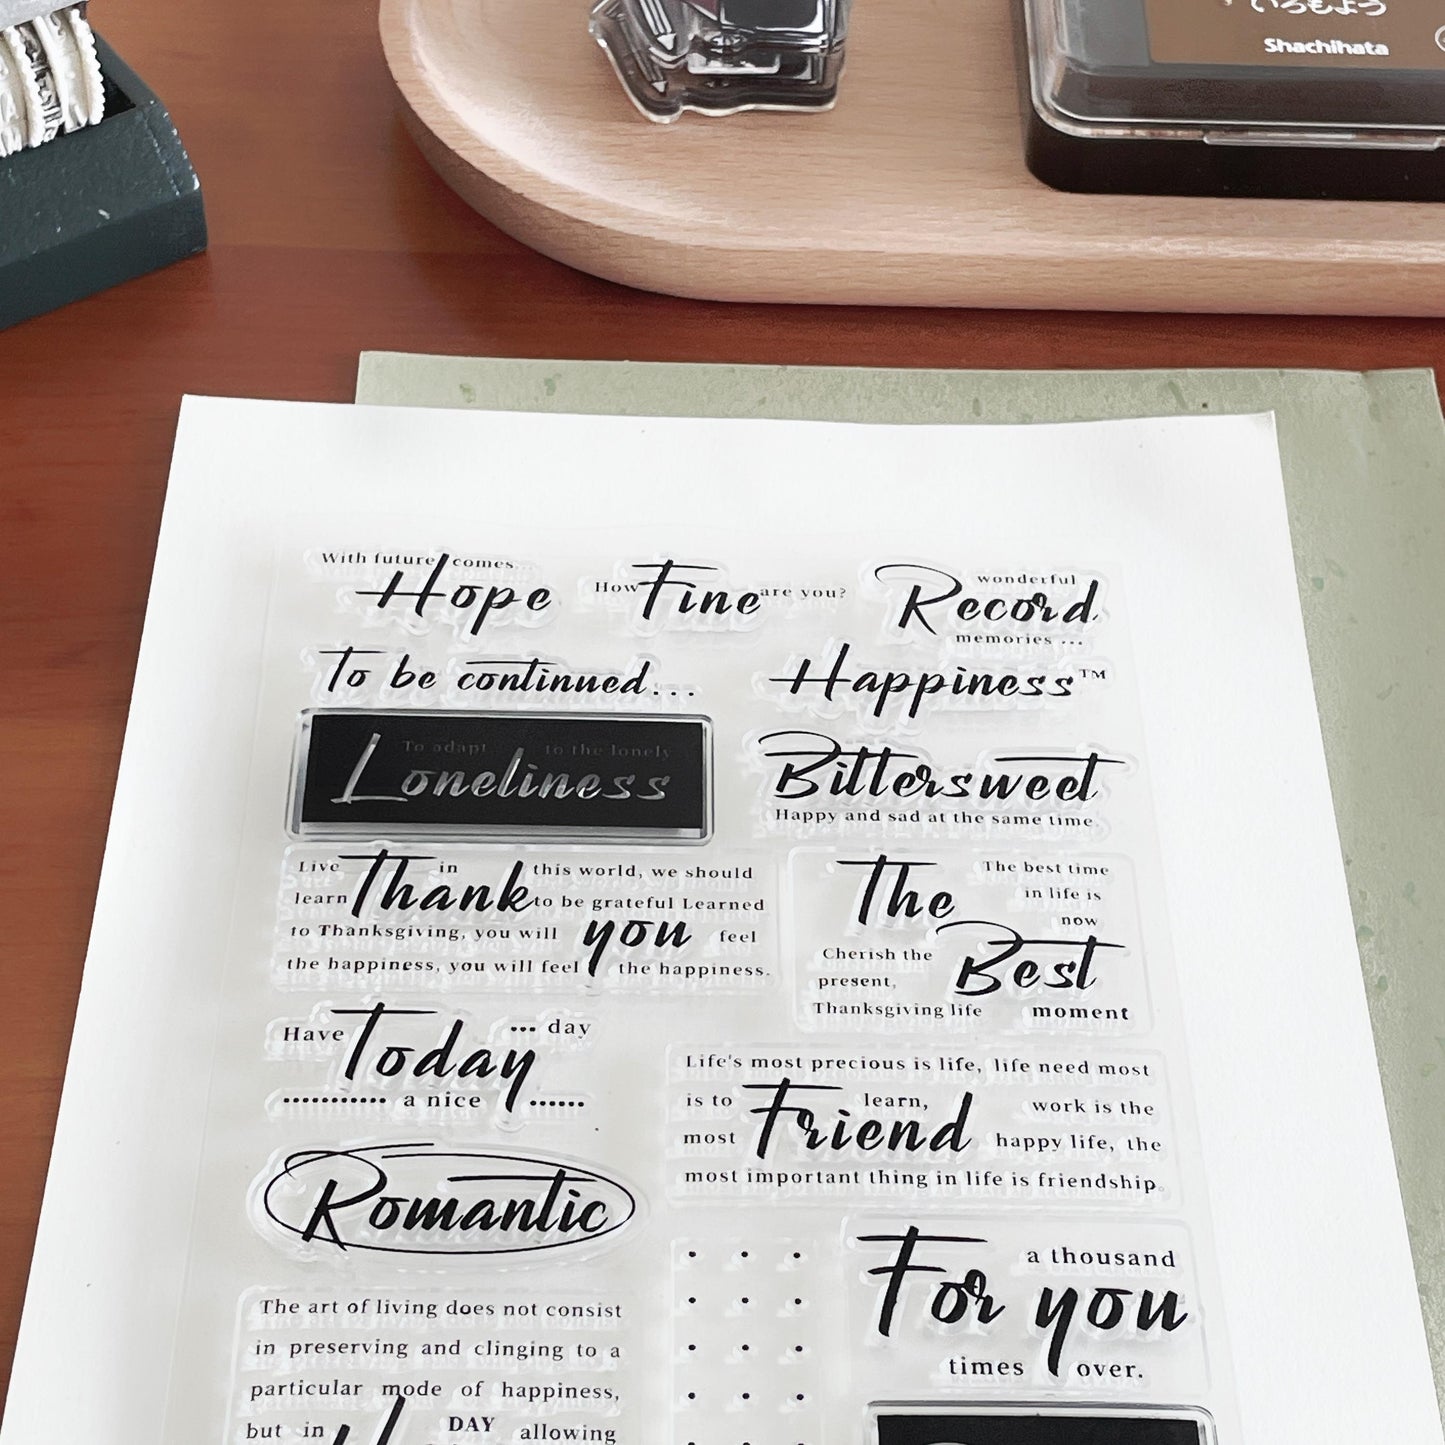 いろもよう
Shachihata
With future comes...
Hope
How Fine are you?
wonderful
Record
memories ...
To be continued...
Happiness™
To adapt to the lonely
Loneliness
Bittersweet
Happy and sad at the same time.
Live in this world, we should
learn Thank to be grateful Learned
to Thanksgiving, you will you feel
the happiness, you will feel the happiness.
The best time
The in life is
now
Cherish the
present, Best
Thanksgiving life moment
Have Today ... day
........... a nice ......
Life's most precious is life, life need most
is to learn, work is the
most Friend happy life, the
most important thing in life is friendship.
Romantic
a thousand
For you
times over.
The art of living does not consist
in preserving and clinging to a
particular mode of happiness,
but in DAY allowing